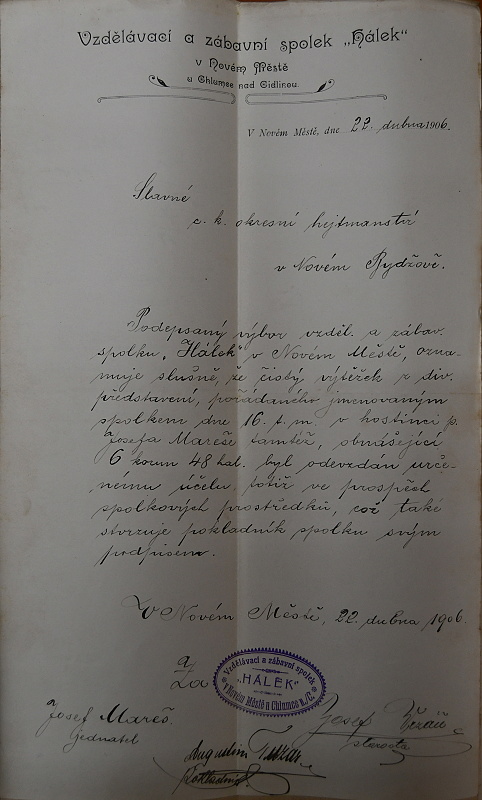 Vzdělávací a zábavní spolek „Hálek“
v Novém Městě
u Chlumce nad Cidlinou.
V Novém Městě, dne 22. dubna 1906.
Slavné
c. k. okresní hejtmanství
v Novém Bydžově.
Podepsaný výbor vzděl. a zábav.
spolku „Hálek“ v Novém Městě, ozna-
muje slušně, že čistý výtěžek z div.
představení, pořádaného jmenovaným
spolkem dne 16. t. m. v hostinci p.
Josefa Mareše tamtéž, obnášející
6 korun 48 hal. byl odevzdán urče-
nému účelu, totiž ve prospěch
spolkových prostředků, což také
stvrzuje pokladník spolku svým
podpisem.
V Novém Městě, 22. dubna 1906.
Za
Vzdělávací a zábavní spolek
„HÁLEK“
v Novém Městě u Chlumce n./C.
Josef Mareš.
jednatel
Augustin
Pokladník
Josef
starosta